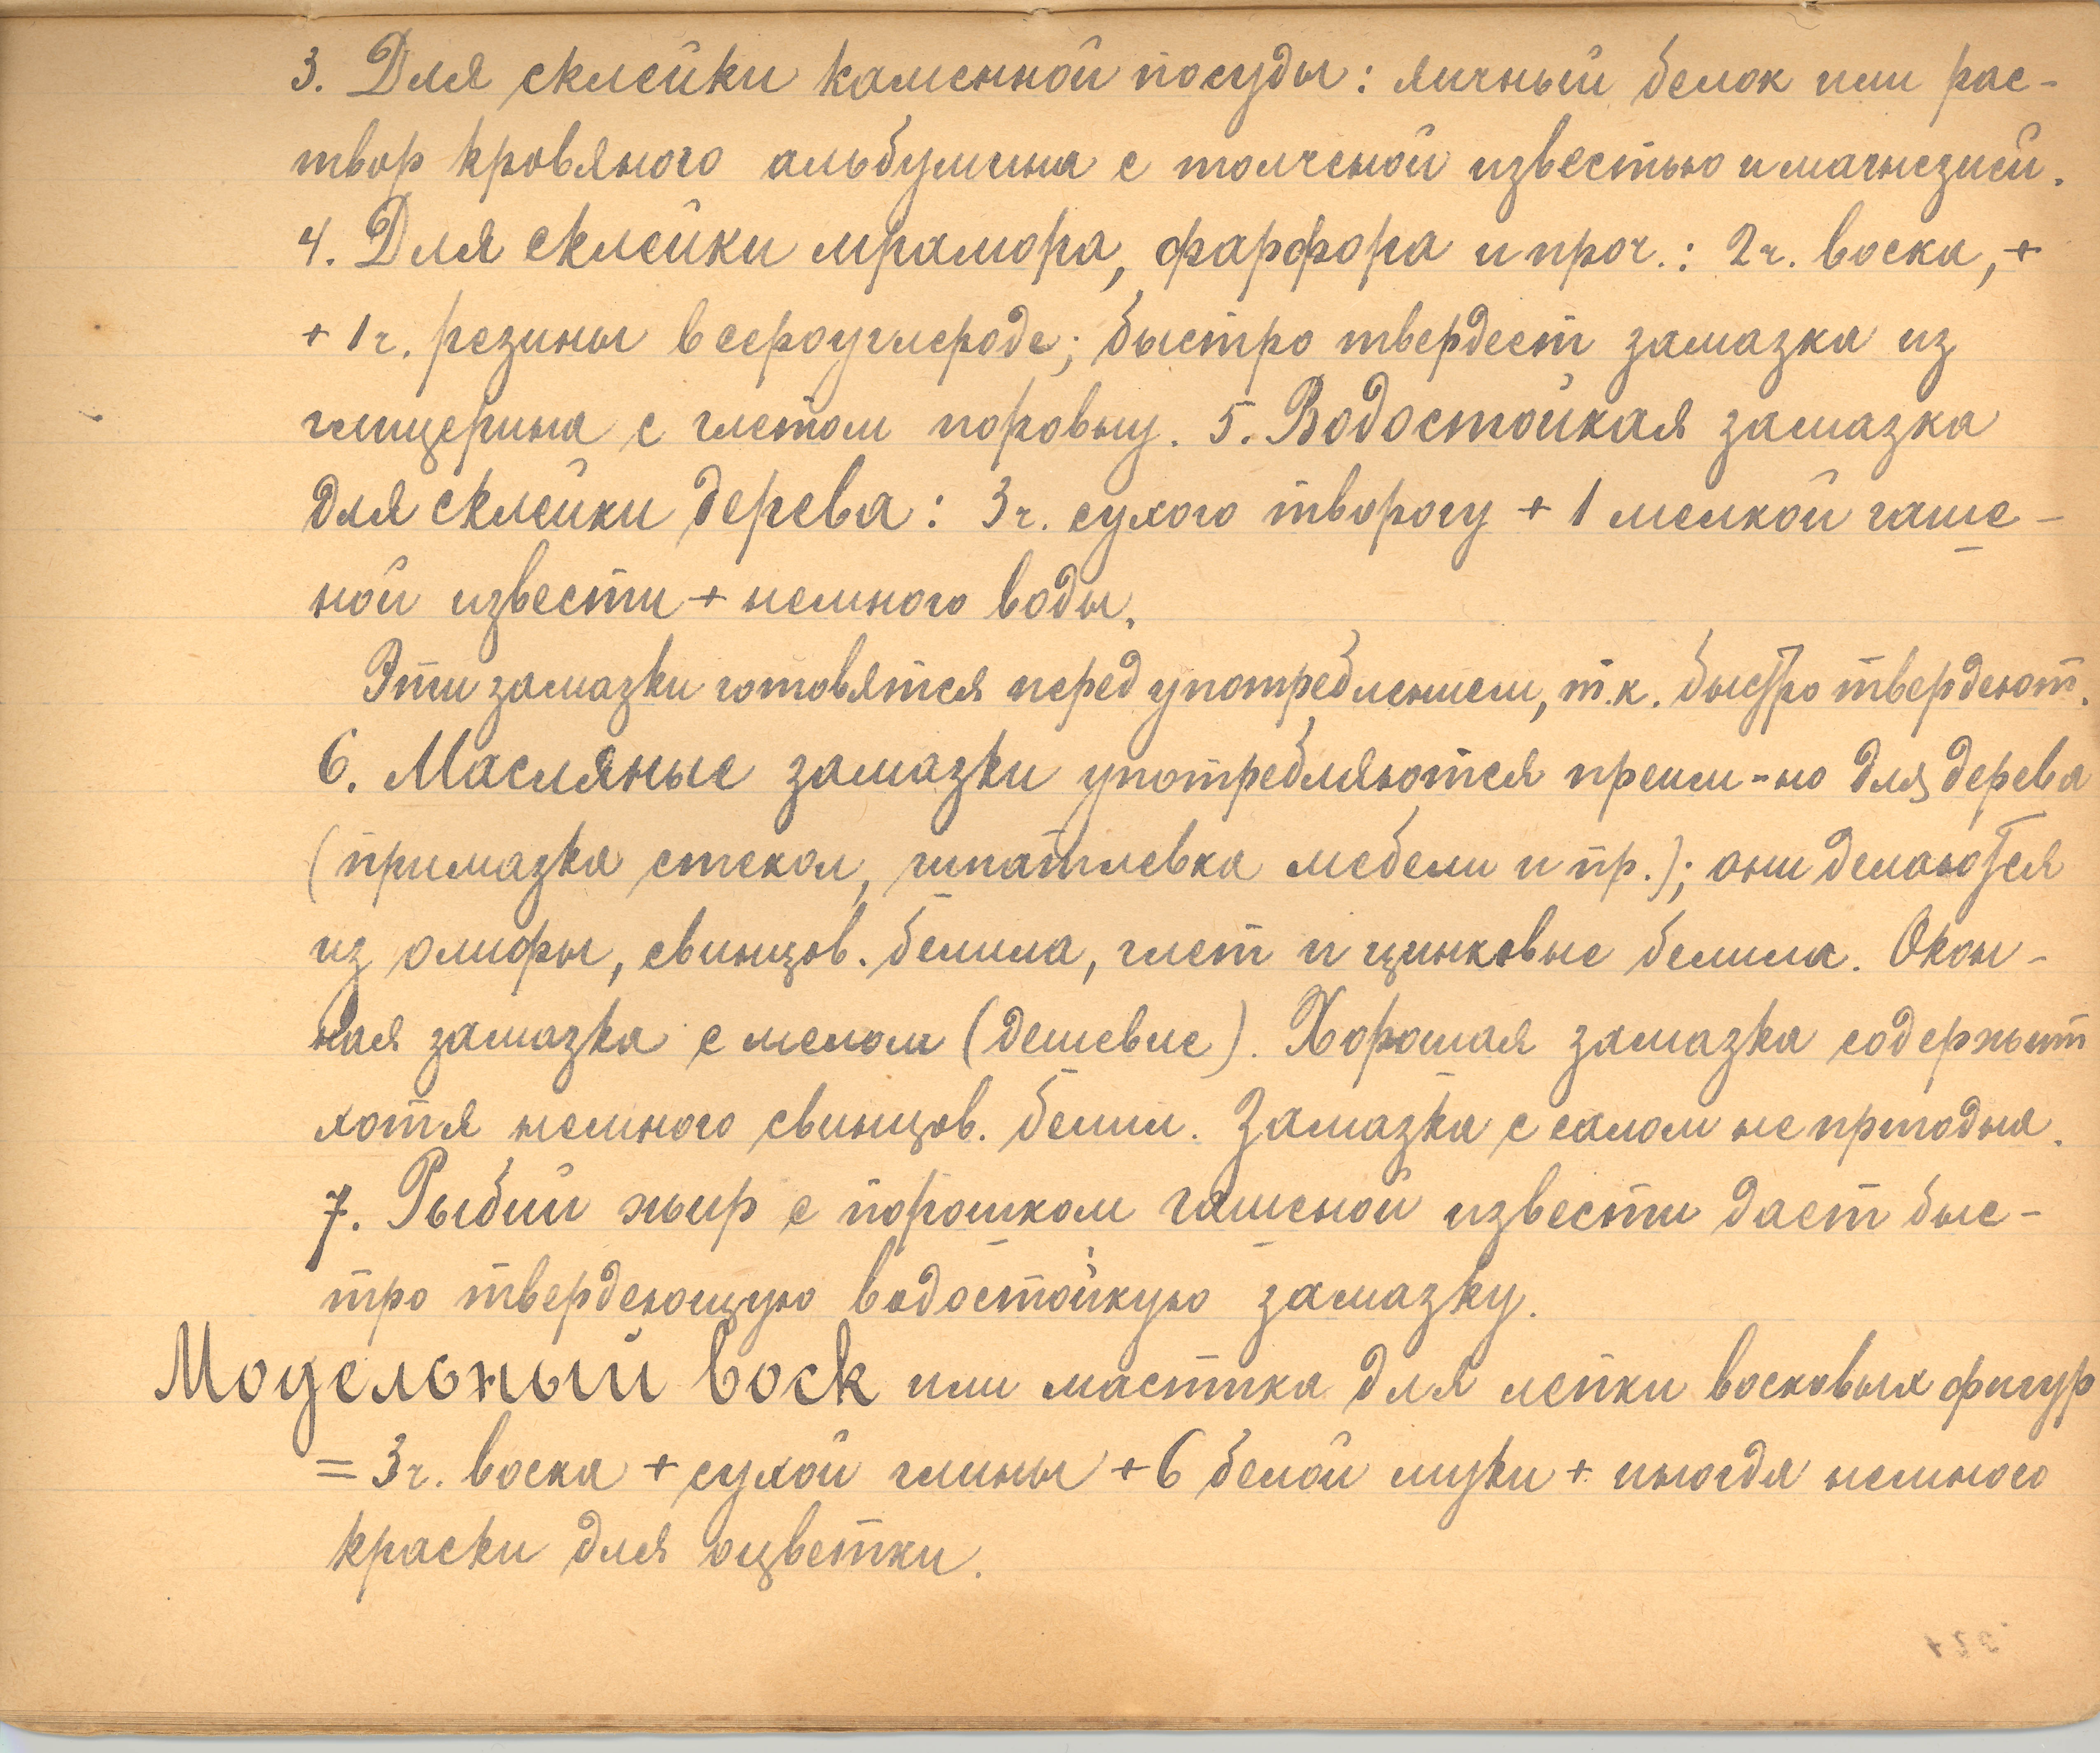 3. Для склейки каменной посуды: яичный белок или рас-
твор кровяного альбумина с толченой известью и магнезией.
4. Для склейки мрамора, фарфора и проч.: 2ч. воска, +
+ 1ч. резины в сероуглероде; быстро твердеет замазка из
глицерина с глетом поровну. 5. Водостойкая замазка
для склейки дерева: 3ч. сухого творогу + 1 мелкой гаше-
ной извести + немного воды.
Эти замазки готовятся перед употреблением, т.к. быстро твердеют.
6. Масляные замазки употребляются преим-но для дерева
(примазка стекол, шпатлевка мебели и пр.); они делаются
из олифы, свинцов. белила, глет и цинковые белила. Окон-
ная замазка с мелом (дешевле). Хорошая замазка содержит
хотя немного свинцов. белил. Замазка с салом не пригодна.
7. Рыбий жир с порошком гашеной извести дает быс-
тро твердеющую водостойкую замазку.
Модельный воск или мастика для лепки восковых фигур
= 3ч. воска + сухой глины + 6 белой муки + иногда немного
краски для оцветки.